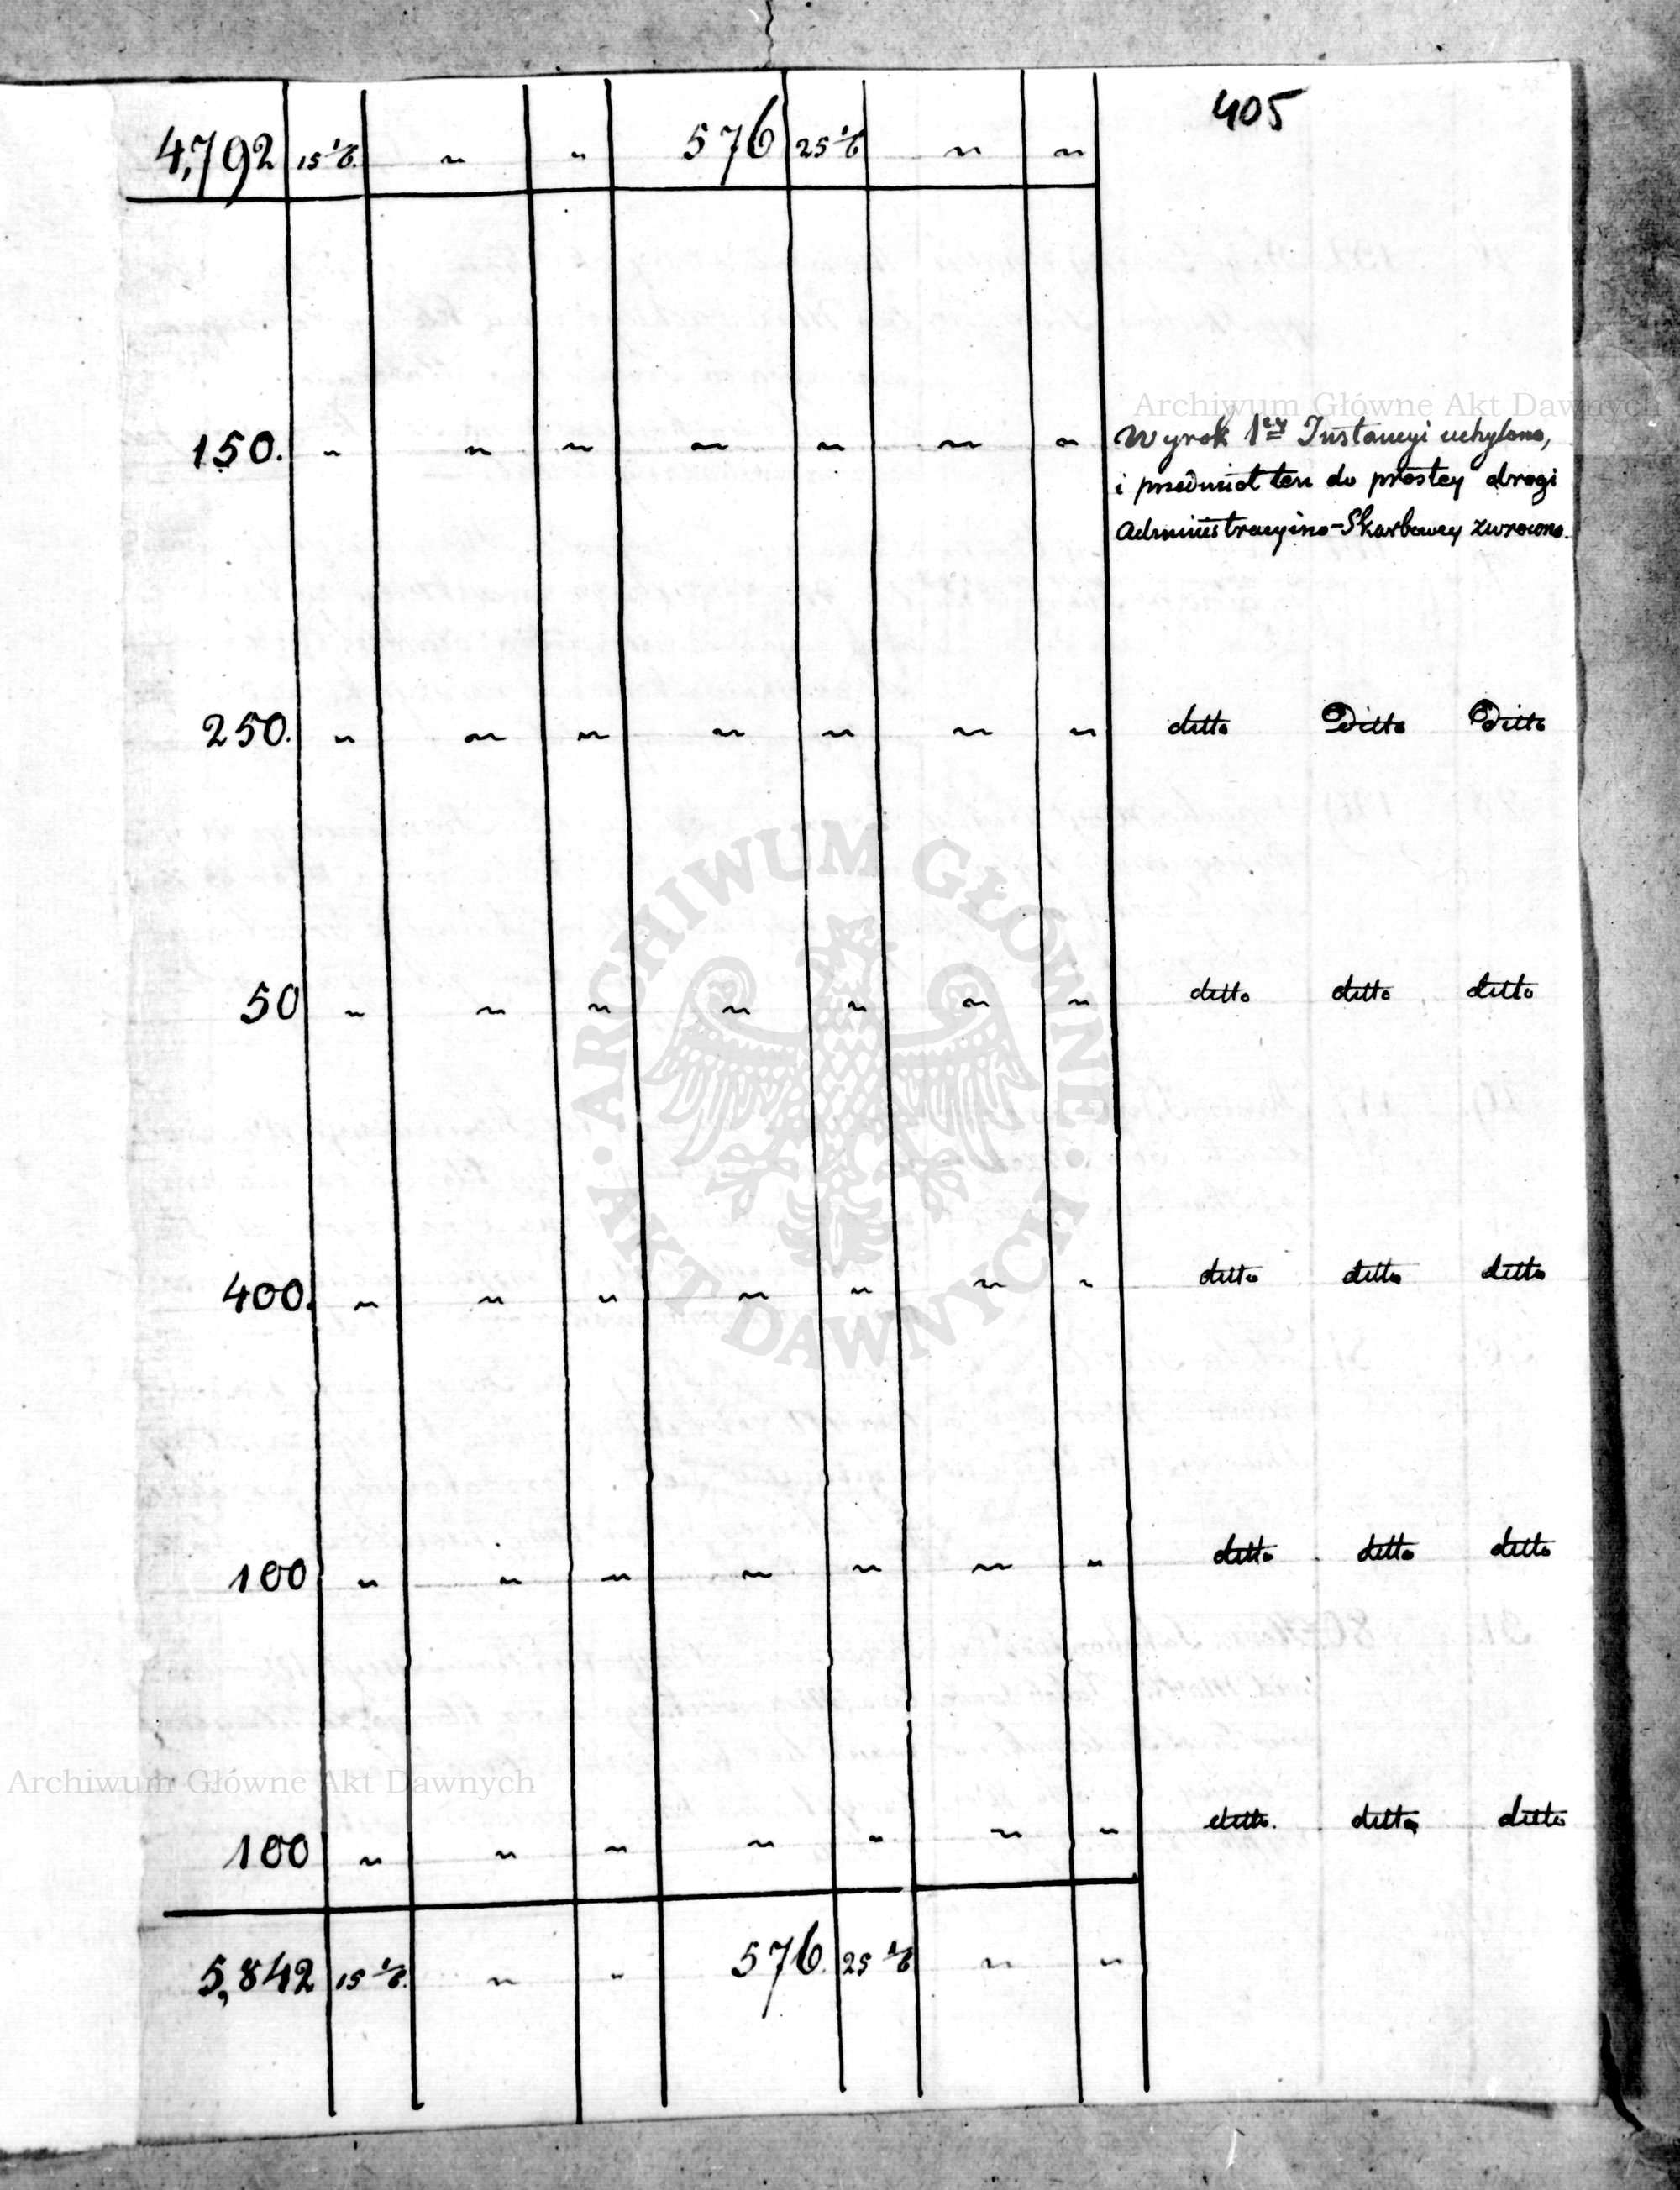 405
4,792 15 ~ ~ 576 25 ~ ~
Archiwum Główne Akt Dawnych
150. ~ ~ ~ ~ ~ ~ ~ Wyrok 1ey Instancyi uchylono,
i przedmiot ten do prostey drogi
Administracyino-Skarbowey zwrocono.
250. ~ ~ ~ ~ ~ ~ ~ ditto Ditto Ditto
50 ~ ~ ~ ~ ~ ~ ~ ditto ditto ditto
ARCHIWUM GŁÓWNE · AKT DAWNYCH ·
400. ~ ~ ~ ~ ~ ~ ~ ditto ditto ditto
100 ~ ~ ~ ~ ~ ~ ~ ditto ditto ditto
Archiwum Główne Akt Dawnych
100 ~ ~ ~ ~ ~ ~ ~ ditto. ditto ditto
5,842 15 ~ ~ 576. 25 ~ ~